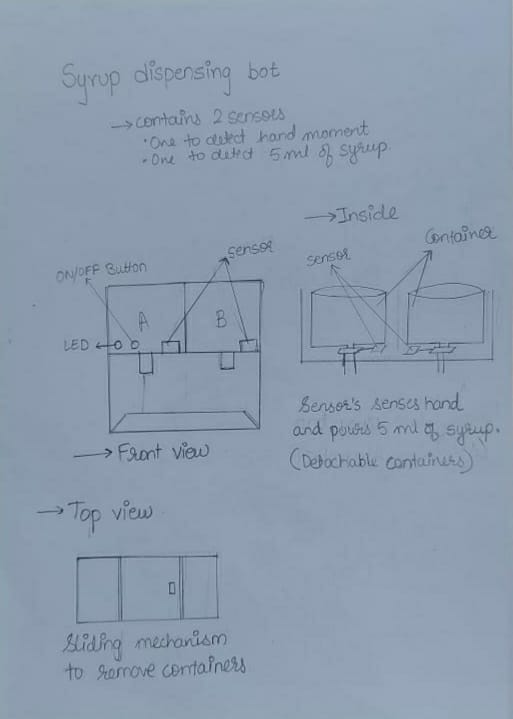 Syrup dispensing bot
→ contains 2 sensors
• One to detect hand moment
• One to detect 5 ml of syrup.
→ Inside
Container
sensor
sensor
ON/OFF Button
A
B
LED
Sensor's senses hand
and pours 5 ml of syrup.
(Detachable containers)
→ Front view
→ Top view
Sliding mechanism
to remove containers